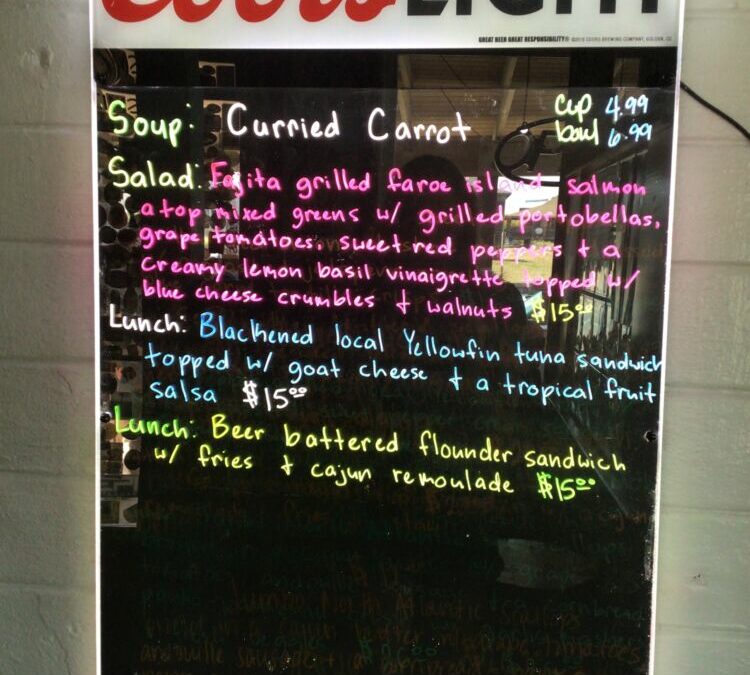 Coors LIGHT
GREAT BEER GREAT RESPONSIBILITY® ©2016 COORS BREWING COMPANY, GOLDEN, CO
Soup: Curried Carrot cup 4.99
bowl 6.99
Salad: Fajita grilled faroe island salmon
atop mixed greens w/ grilled portobellas,
grape tomatoes, sweet red peppers + a
creamy lemon basil vinaigrette topped w/
blue cheese crumbles + walnuts $15.00
Lunch: Blackened local Yellowfin tuna sandwich
topped w/ goat cheese + a tropical fruit
salsa $15.00
Lunch: Beer battered flounder sandwich
w/ fries + cajun remoulade $15.00